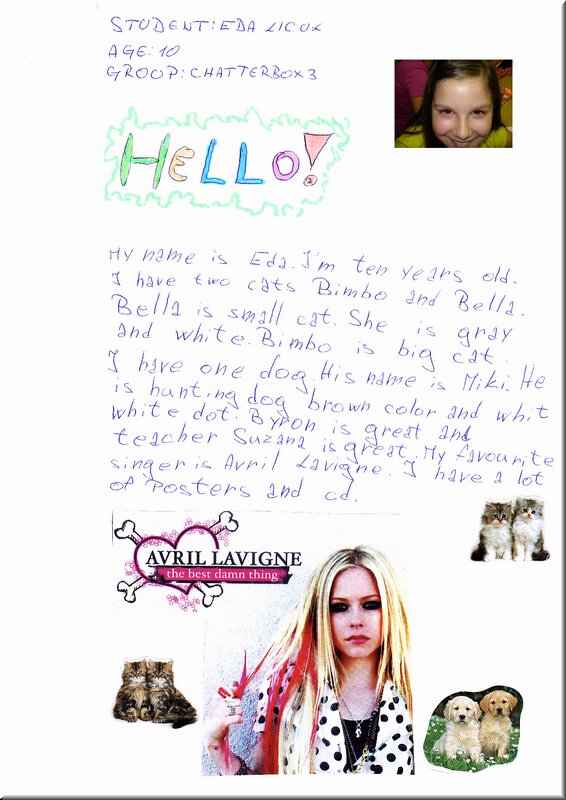 STUDENT: EDA LICUL
AGE: 10
GROUP: CHATTERBOX 3
HELLO!
My name is Eda. I'm ten years old.
I have two cats Bimbo and Bella.
Bella is small cat. She is gray
and white. Bimbo is big cat.
I have one dog. His name is Miki. He
is hunting dog brown color and whit
white dot. Byron is great and
teacher Suzana is great. My favourite
singer is Avril Lavigne. I have a lot
of posters and cd.
AVRIL LAVIGNE
the best damn thing